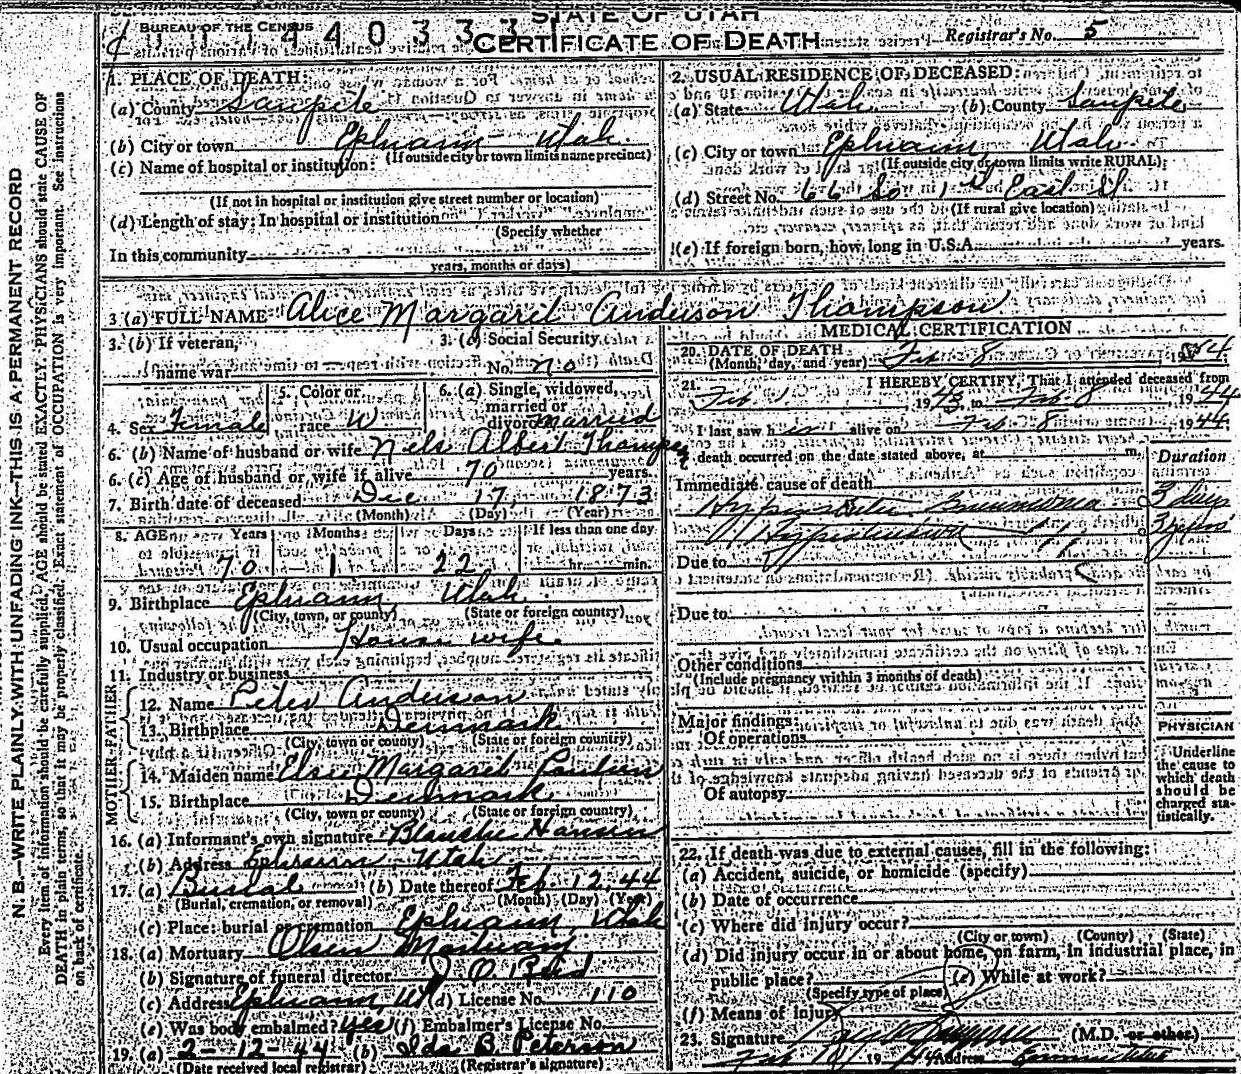 STATE OF UTAH
BUREAU OF THE CENSUS
CERTIFICATE OF DEATH
Registrar's No. 5
N. B.—WRITE PLAINLY WITH UNFADING INK—THIS IS A PERMANENT RECORD
Every item of information should be carefully supplied. AGE should be stated EXACTLY. PHYSICIANS should state CAUSE OF
DEATH in plain terms, so that it may be properly classified. Exact statement of OCCUPATION is very important. See instructions
on back of certificate.
1. PLACE OF DEATH:
(a) County Sanpete
(b) City or town Ephraim Utah
(If outside city or town limits name precinct)
(c) Name of hospital or institution:
(If not in hospital or institution give street number or location)
(d) Length of stay; In hospital or institution
(Specify whether
In this community
years, months or days)
2. USUAL RESIDENCE OF DECEASED:
(a) State Utah (b) County Sanpete
(c) City or town Ephraim Utah
(If outside city or town limits write RURAL)
(d) Street No. 66 So. 1st East St
(If rural give location)
(e) If foreign born, how long in U.S.A. years.
3 (a) FULL NAME Alice Margaret Anderson Thompson
3. (b) If veteran,
name war
3. (c) Social Security
No. no
4. Sex Female
5. Color or
race W
6. (a) Single, widowed,
married or
divorced married
6. (b) Name of husband or wife Nels Albert Thompson
6. (c) Age of husband or wife if alive 70 years
7. Birth date of deceased Dec 17 1873
(Month) (Day) (Year)
8. AGE Years Months Days If less than one day
70 1 22 hr. min.
9. Birthplace Ephraim Utah
(City, town, or county) (State or foreign country)
10. Usual occupation House wife
11. Industry or business
FATHER
12. Name Peter Anderson
13. Birthplace Denmark
(City, town or county) (State or foreign country)
MOTHER
14. Maiden name Elsie Margaret
15. Birthplace Denmark
(City, town or county) (State or foreign country)
16. (a) Informant's own signature Blanche Hansen
(b) Address Ephraim Utah
17. (a) Burial (b) Date thereof Feb. 12, 44
(Burial, cremation, or removal) (Month) (Day) (Year)
(c) Place: burial or cremation Ephraim, Utah
18. (a) Mortuary Olsen Mortuary
(b) Signature of funeral director
(c) Address Ephraim Ut (d) License No. 110
(e) Was body embalmed? yes (f) Embalmer's License No.
19. (a) 2-12-44 (b) Ida B. Peterson
(Date received local registrar) (Registrar's signature)
MEDICAL CERTIFICATION
20. DATE OF DEATH
(Month, day, and year) Feb 8 1944
21. I HEREBY CERTIFY, That I attended deceased from
Feb 1 1943, to Feb 8 1944
I last saw her alive on Feb 8 1944
death occurred on the date stated above, at m.
Duration
Immediate cause of death
Hypostatic Pneumonia 3 days
Hypertension 3 years
Due to
Due to
Other conditions
(Include pregnancy within 3 months of death)
Major findings:
Of operations
Of autopsy
PHYSICIAN
Underline
the cause to
which death
should be
charged sta-
tistically.
22. If death was due to external causes, fill in the following:
(a) Accident, suicide, or homicide (specify)
(b) Date of occurrence
(c) Where did injury occur?
(City or town) (County) (State)
(d) Did injury occur in or about home, on farm, in industrial place, in
public place? (e) While at work?
(Specify type of place)
(f) Means of injury
23. Signature (M.D. or other)
Feb 1944 Address